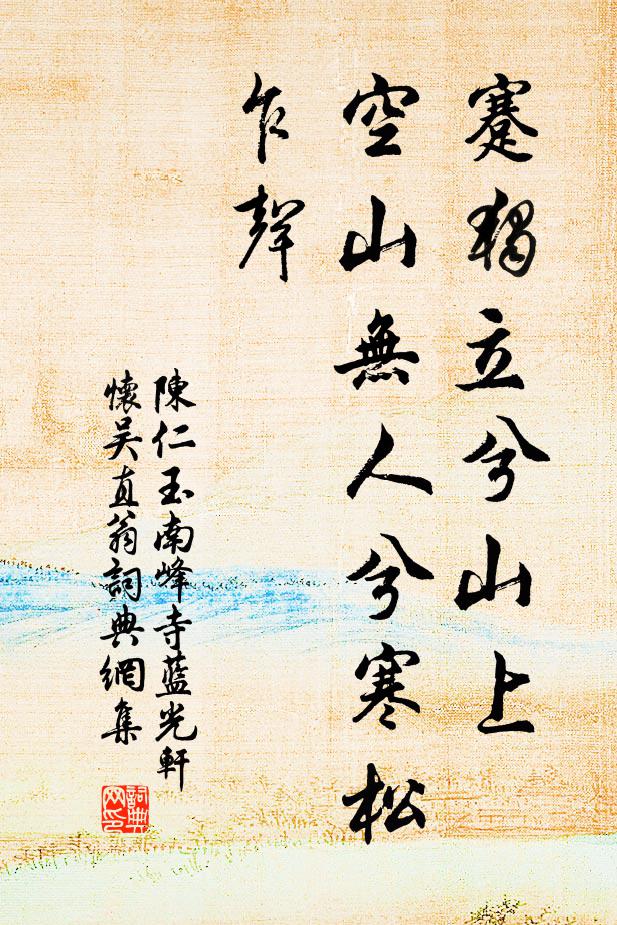 蹇獨立兮山上
空山無人兮寒松
乍聲
陳仁玉南峰寺藍光軒
懷吴直翁詞典網集
詞典
网印